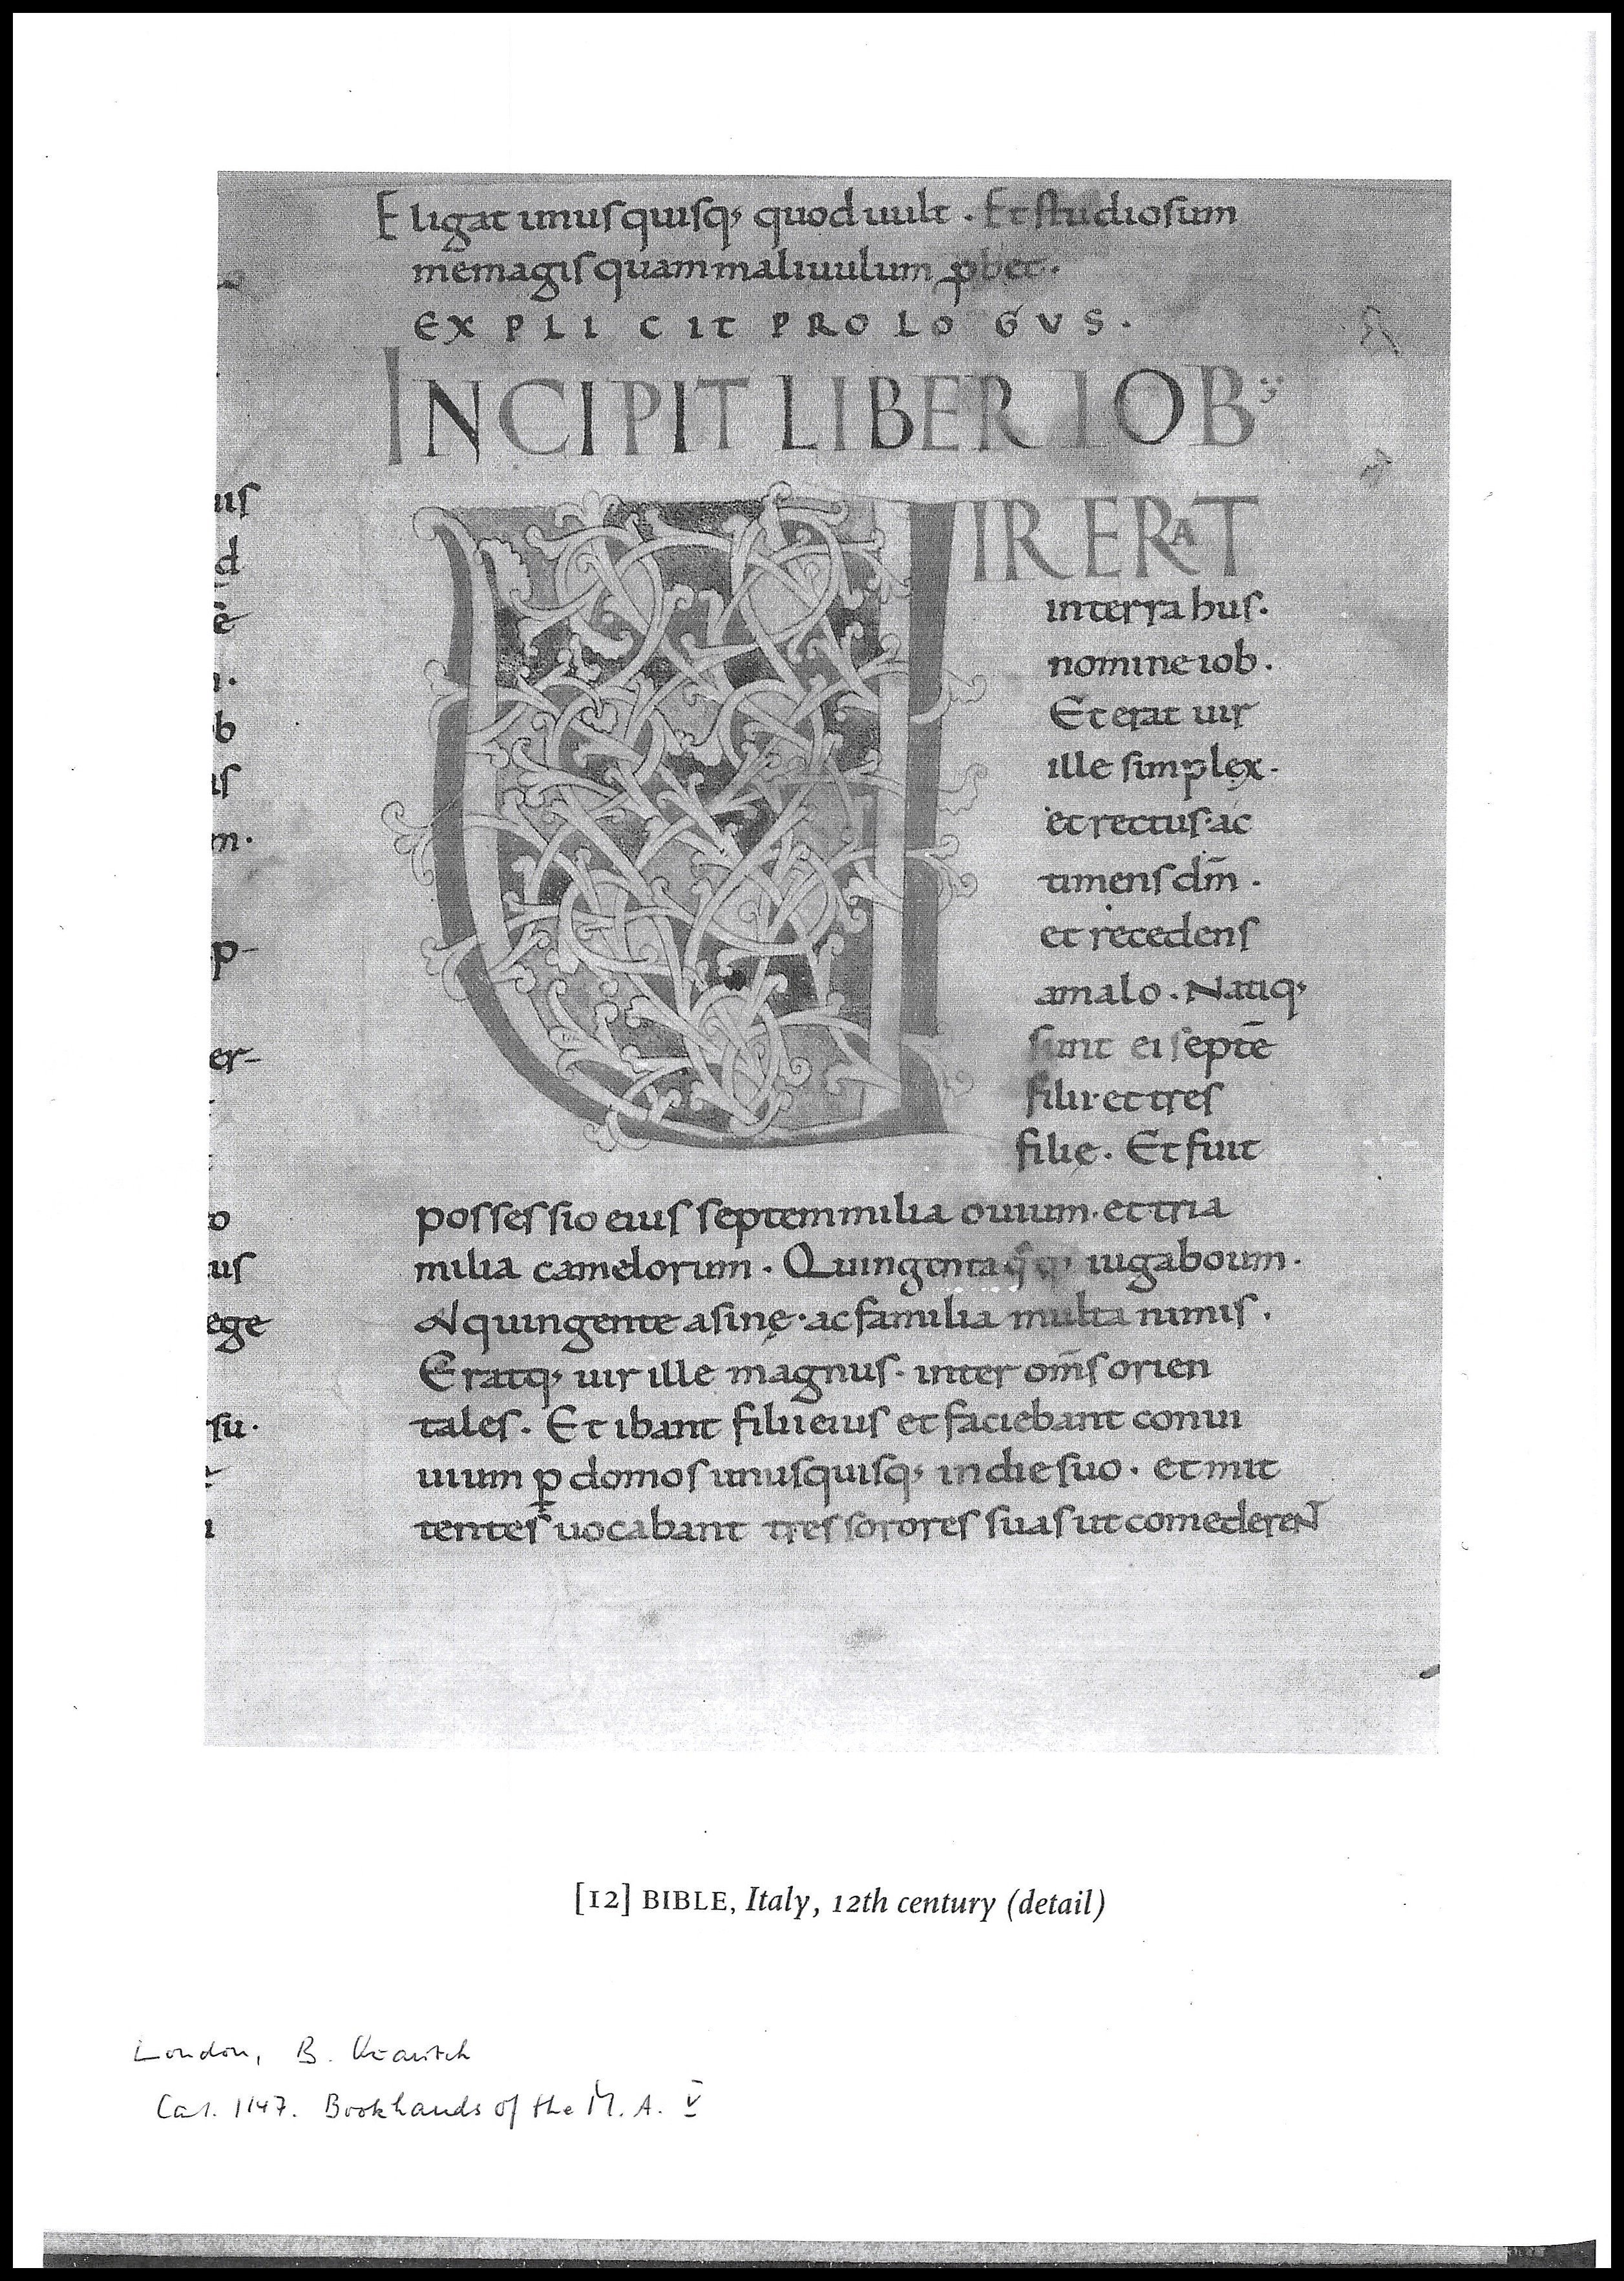 Eligat unusquisq; quod uult. Et studiosum
me magis quam maliuulum ꝓbet.
EXPLICIT PROLOGVS.
INCIPIT LIBER IOB
VIR ERAT
in terra hus.
nomine iob.
Et erat uir
ille simplex.
et rectus. ac
timens dm̄.
et recedens
a malo. Natiq;
sunt ei septē
filii. et tres
filię. Et fuit
possessio eius septem milia ouium. et tria
milia camelorum. Quingenta q̄q; iuga boum.
Ac quingente asinę. ac familia multa nimis.
Eratq; uir ille magnus. inter om̄s orien
tales. Et ibant filii eius et faciebant conui
uium ꝑ domos unusquisq; in die suo. et mit
tentes uocabant tres sorores suas ut comederent
us
d
ē
b
is
m.
p-
er-
o
us
ege
su.
[12] BIBLE, Italy, 12th century (detail)
London, B. Quaritch
Cat. 1147. Bookhands of the M. A. V